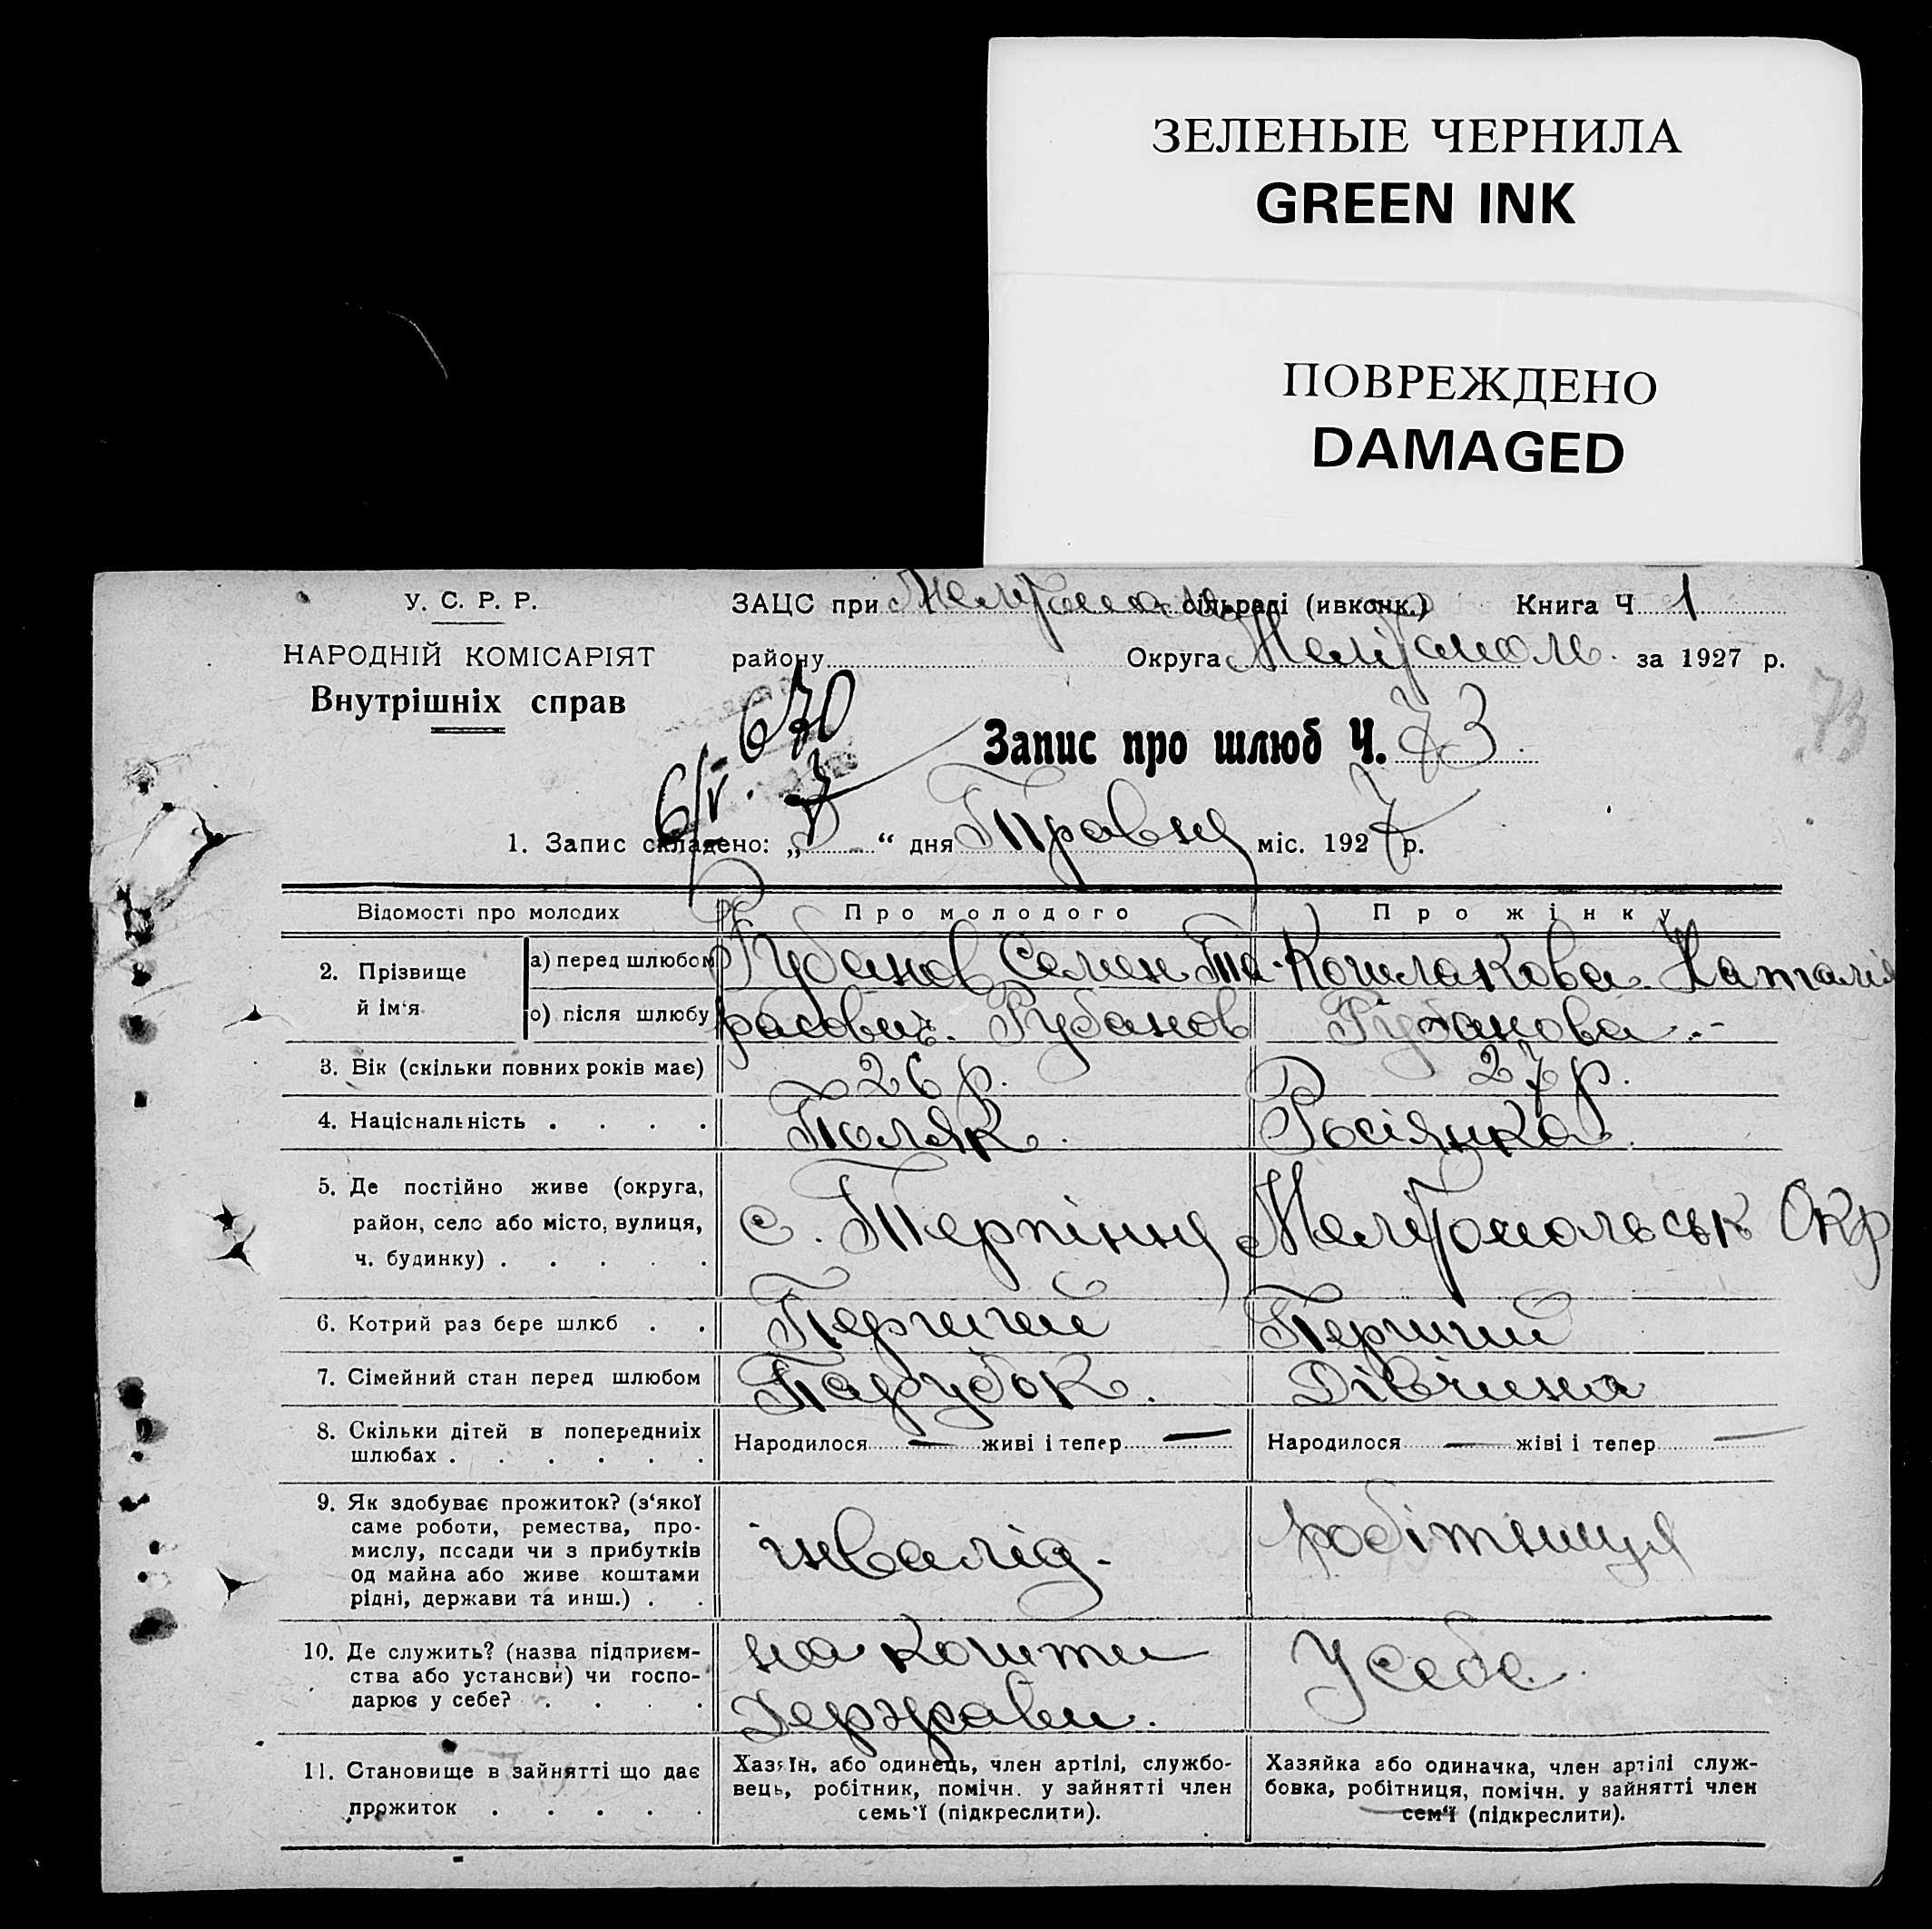 ЗЕЛЕНЫЕ ЧЕРНИЛА
GREEN INK
ПОВРЕЖДЕНО
DAMAGED
У. С. Р. Р.
НАРОДНІЙ КОМІСАРІЯТ
Внутрішніх справ
ЗАЦС при сільраді (ивконк.) Книга Ч 1
району Округа Меліtополь за 1927 р.
73
670
6/V
Запис про шлюб Ч. 73
1. Запис складено: „ “ дня Травня міс. 1927 р.
Відомості про молодих Про молодого Про жінку
2. Прізвище й ім‘я
а) перед шлюбом Рубанов Семен Та- Кошлакова Наталія
о) після шлюбу расович. Рубанов Рубанова
3. Вік (скільки повних років має) 26 р. 27 р.
4. Національність . . . . Поляк. Росіянка
5. Де постійно живе (округа,
район, село або місто, вулиця,
ч. будинку) . . . . .
с. Терпіння Мелітопольськ Окр
6. Котрий раз бере шлюб . . Перший Перший
7. Сімейний стан перед шлюбом Парубок. Дівчина
8. Скільки дітей в попередниіх
шлюбах . . . . . .
Народилося — живі і тепер — Народилося — жіві і тепер —
9. Як здобуває прожиток? (з‘якої
саме роботи, ремества, про-
мислу, посади чи з прибутків
од майна або живе коштами
рідні, держави та инш.) . .
інвалід. робітниця
10. Де служить? (назва підприєм-
ства або установи) чи госпо-
дарює у себе? . . . .
на кошти
держави.
У себе.
11. Становище в зайнятті що дає
прожиток . . . . .
Хазяїн, або одинець, член артілі, службо-
вець, робітник, помічн. у зайнятті член
семь‘ї (підкреслити).
Хазяйка або одиначка, член артілі служ-
бовка, робітниця, помічн. у зайнятті член
сем‘ї (підкреслити).